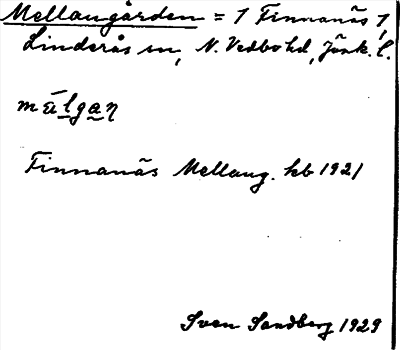 Mellangården = 1 Finnanäs 1,
Linderås sn, N. Vedbo hd, Jönk. l.
Finnanäs Mellang. kb 1921
Sven Sandberg 1929